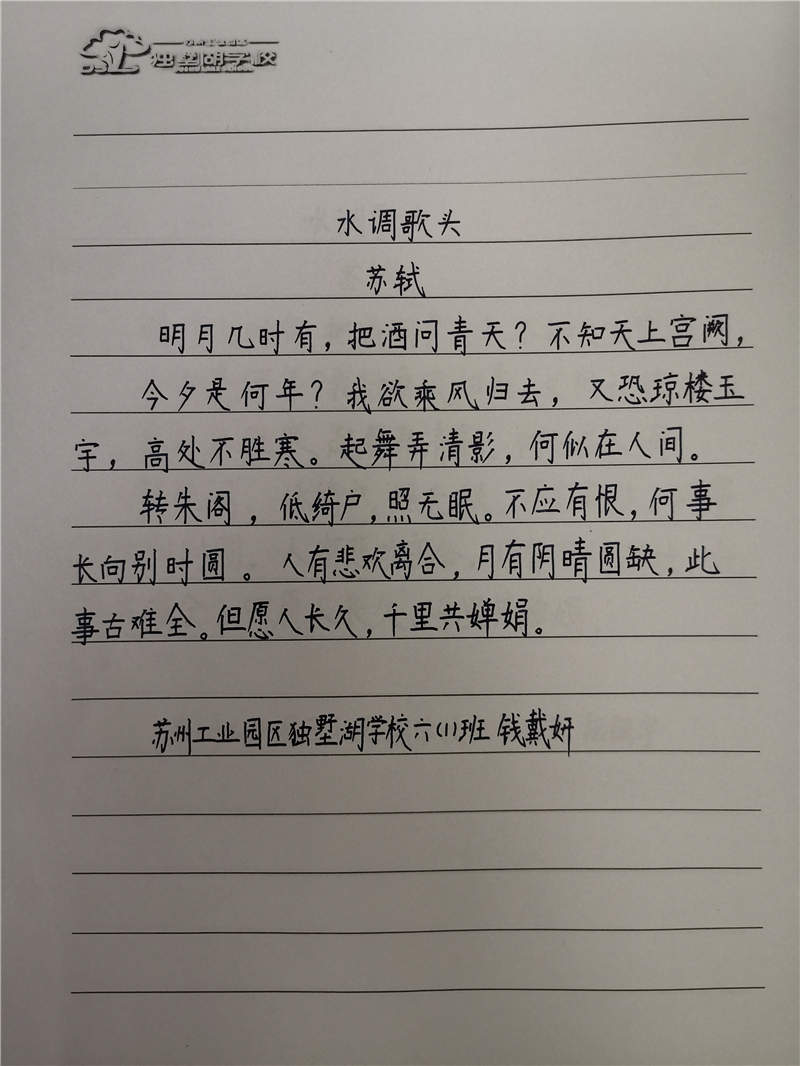 独墅湖学校
水调歌头
苏轼
明月几时有，把酒问青天？不知天上宫阙，
今夕是何年？我欲乘风归去，又恐琼楼玉
宇，高处不胜寒。起舞弄清影，何似在人间。
转朱阁，低绮户，照无眠。不应有恨，何事
长向别时圆。人有悲欢离合，月有阴晴圆缺，此
事古难全。但愿人长久，千里共婵娟。
苏州工业园区独墅湖学校六(1)班 钱戴妍